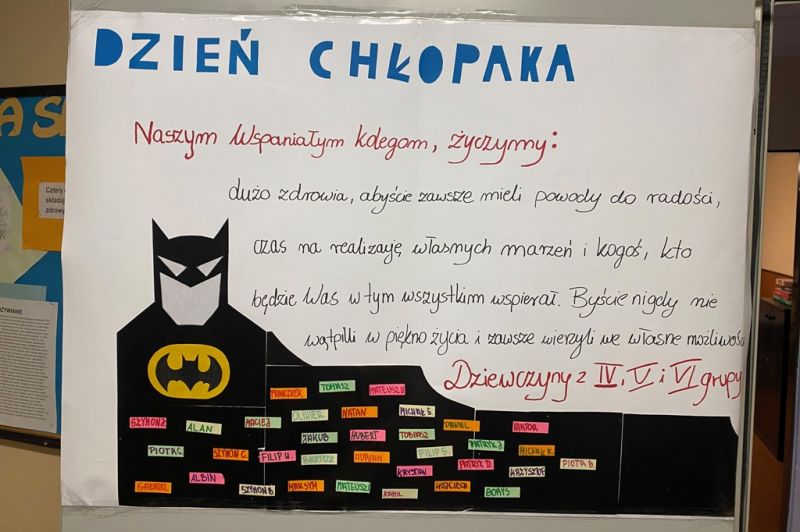 DZIEŃ CHŁOPAKA
Naszym Wspaniałym kolegom, życzymy:
dużo zdrowia, abyście zawsze mieli powody do radości,
czas na realizaję własnych marzeń i kogoś, kto
będzie Was w tym wszystkim wspierał. Byście nigdy nie
wątpilli w piękno życia i zawsze wierzyli we własne możliwości
Dziewczyny z IV, V i VI grupy
FRANCISZEK TOMASZ MATEUSZ U
SZYMON J ALAN MACIEJ OLIWIER NATAN MICHAŁ S. DANIEL WIKTOR
JAKUB HUBERT TOBIASZ PATRYK J
PIOTR C. SZYMON C. FILIP W. BARTOSZ ADRIAN FILIP S. MICHAŁ K.
ALBIN KRYSTIAN PATRYK D. KRZYSZTOF PIOTR B.
GABRIEL SZYMON B MAKSYM MATEUSZ KAMIL WOJCIECH BORYS
A S
Cztery
składaj
zdrowy
ŻYWIANIE